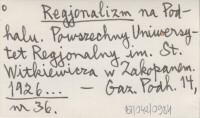 Regjonalizm na Pod-
halu. Powszechny Uniwersy-
tet Regjonalny im. St.
Witkiewicza w Zakopanem.
1926... — Gaz. Podh. 14,
nr 36.